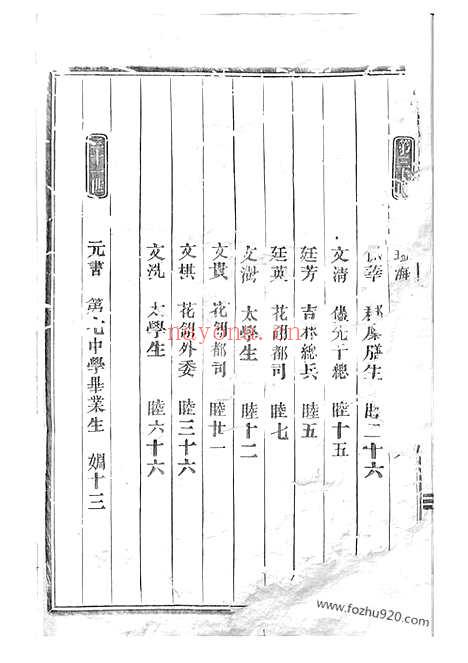 海
華 生 二十六
文清 儘先千總 睦十五
廷芳 吉林總兵 睦五
廷英 花翎都司 睦七
文澍 太學生 睦十二
文貴 花翎都司 睦廿一
文棋 花翎外委 睦三十六
文洗 太學生 睦六十六
元書 第九中學畢業生 婣十三
nayona.cn
www.fozhu920.com